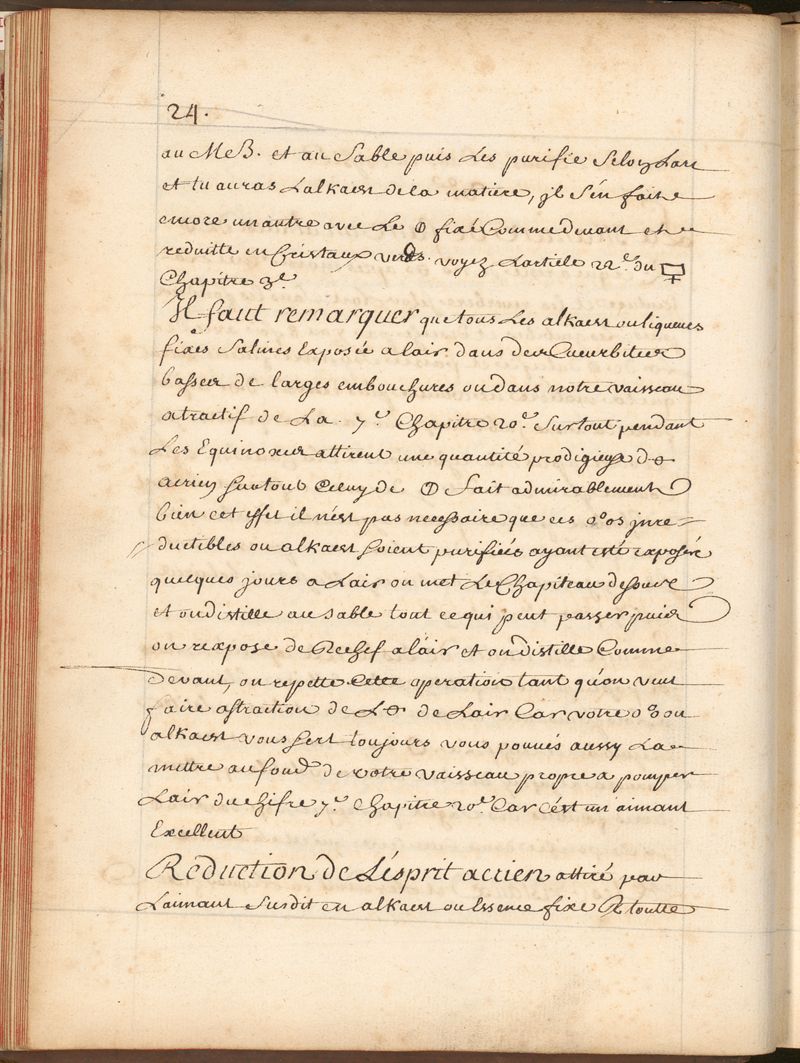 24.
au MeB. et au Sable puis Les purifie Selon Lart
et tu auras Lalkaest de la matiere, jl s'en fait
encore un autre avec Le fixé Comme devant et
reduitte en Cristaux verds. voyez Larticle 22.e du
Chapitre 3.e
Il faut remarquer que tous Les alkaest ou liqueurs
fixes Salines Exposée a lair dans des Cucurbittes
basses de larges embouchures ou dans notre vaisseau
atractif de La 7.e Chapitre 20.e Surtout pendant
Les Equinoxes attirent une quantité prodigieuse d
aerien Surtout Celuy de fait admirablement
bien cet effet il n'est pas necessaire que ces jnre=
ductibles ou alkaest soient purifiées ayant esté exposéé
quelques jours a Lair on met Le Chapiteau dessus
et on distille au sable tout ce qui peut passer puis
on rexpose de Rechef a l'air et on distille Comme
devant, on repette Cette operation tant qu'on veut
faire attraction de L de Lair Car votre ou
alkaest vous sert toujours vous pouués aussy La
mettre au fond de votre vaisseau propre a pomper
Lair du chifre 7.e Chapitre 20.e Car c'est un aimant
Excellent
Reduction de L'ésprit aerien attiré par
Laimant Susdit en alkaest ou Essence fixe toutte